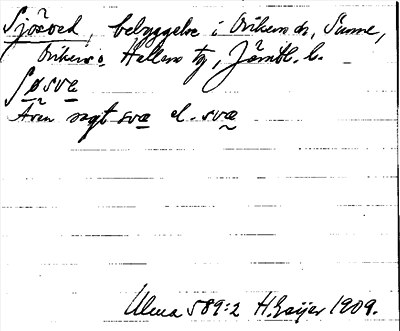 Sjösved, bebyggelse i Ovikens sn, Sunne,
Ovikens o Hallens tg, Jämtl. l.
ʃøsvæ
Även sagt svæ el. svæ
Ulma 589:2 H. Geijer 1909.